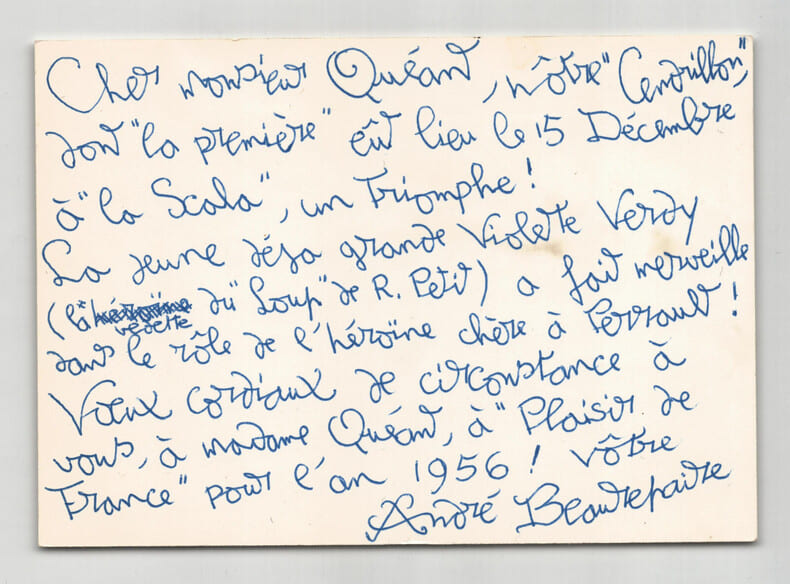 Cher monsieur Quéant, nôtre "Cendrillon",
dont "la première" eût lieu le 15 Décembre
à "la Scala", un Triomphe !
La jeune déja grande Violette Verdy
(la vedette du "Loup" de R. Petit) a fait merveille
dans le rôle de l'héroïne chère à Perrault !
Vœux cordiaux de circonstance à
vous, à madame Quéant, à "Plaisir de
France" pour l'an 1956 ! vôtre
André Beaurepaire